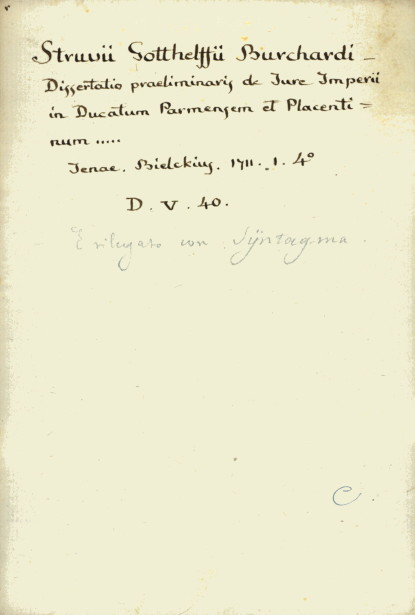 Struvii Gotthelffii Burchardi –
Dissertatio praeliminaris de Jure Imperii
in Ducatum Parmensem et Placenti=
num .....
Jenae. Bielckius. 1711. 1. 4°
D. V. 40.
È rilegato con Sÿntagma.
C.